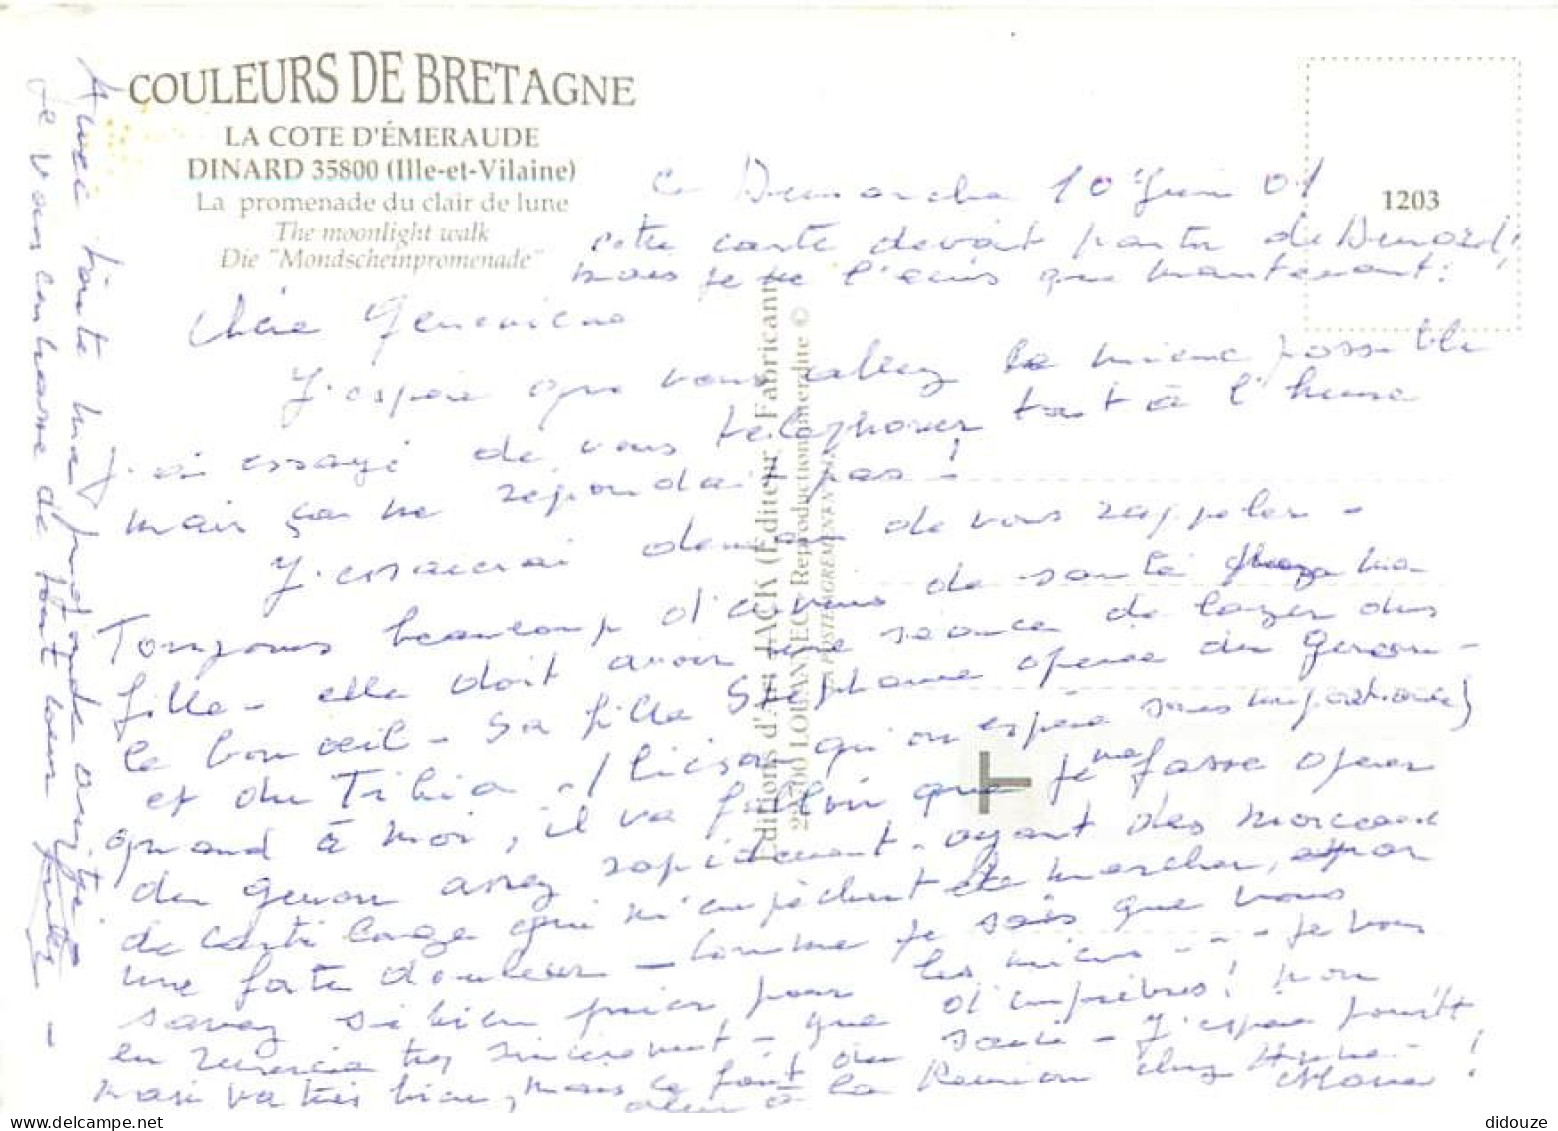 COULEURS DE BRETAGNE
LA COTE D'ÉMERAUDE
DINARD 35800 (Ille-et-Vilaine)
La promenade du clair de lune
The moonlight walk
Die "Mondscheinpromenade"
1203
Ce Dimanche 10 Juin 01
cette carte devait partir de Dinard!
mais je ne l'écris que maintenant.
Chère Geneviève
J'espère que vous allez le mieux possible
J'ai essayé de vous téléphoner tout à l'heure
mais ça ne répondait pas!
J'essaierai demain de vous rappeler -
Toujours beaucoup d'ennuis de santé ma
fille - elle doit avoir une séance de lazer dus
le bon œil - Sa fille Stéphanie opérée du genou -
et du Tibia - (lésion qu'on espère sans importance)
quand à moi, il va falloir que je me fasse opérer
du genou assez rapidement - ayant des morceaux
de cartilage qui m'empêchent de marcher, par
une forte douleur - comme je sais que vous
savez si bien prier pour les miens - - - je vous
en remercie très sincèrement - que d'imprévus! mon
mari va très bien, mais ce fait du souci - J'espère pourtt
aller à la Réunion chez Anne-Marie!
Avec toute ma profonde amitié -
Je vous embrasse de tout cœur
Editions d'Art JACK (Editeur - Fabricant)
LOUANNEC - Reproduction interdite ©
LA POSTE AGREMENT N°
T
didouze